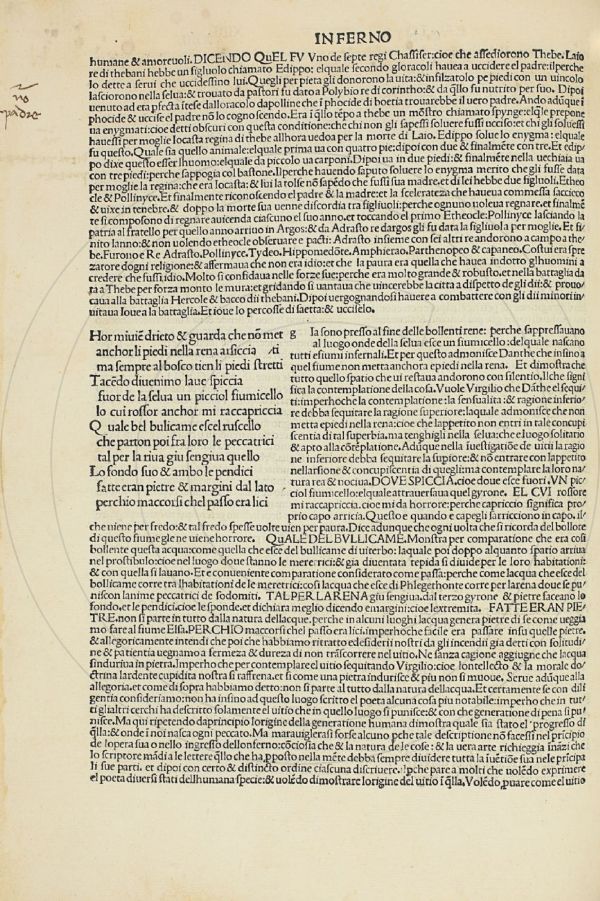 INFERNO
humane & amoreuoli. DICENDO QuEL FV Vno de septe regi Chassiser: cioe che assediorono Thebe. Laio
re di thebani hebbe un figluolo chiamato Edippo: elquale secondo gloracoli hauea a uccidere el padre: ilperche
lo dette a serui che uccidessino lui. Quegli per pieta gli donerono la uita: & infilzatolo pe piedi con un uincolo
lasciorono nella selua: & trouato da pastori fu dato a Polybio re di corintho: & da q̄llo fu nutrito per suo. Dipoi
no
padre
uenuto ad eta p̄fecta itese dalloracolo dapolline ch̄ i phocide di boetia trouarebbe il uero padre. Ando adūque ī
phocide & uccise el padre nō lo cognoscendo. Era ī q̄llo tēpo a thebe un mōstro chiamato spynge: elq̄le propone
ua enygmati: cioe detti obscuri con questa conditione: che chi non gli sapessi soluere fussi ucciso: et chi gli soluessi
hauessi per moglie Iocasta regina di thebe allhora uedoa per la morte di Laio. Edippo solue lo enygma: elquale
fu questo. Quale sia quello animale: elquale prima ua con quatro pie: dipoi con due & finalmēte con tre. Et edip/
po dixe questo esser lhuomo: elquale da piccolo ua carponi. Dipoi ua in due piedi: & finalmēte nella uechiaia ua
con tre piedi: perche sappogia col bastone. Ilperche hauendo saputo soluere lo enygma merito che gli fusse data
per moglie la regina: che era Iocasta: & lui la tolse nō sapēdo che fussi sua madre. et di lei hebbe due figluoli. Etheo
cle & Pollinyce. Et finalmente riconoscendo el padre & la madre: et la scelerateza che hauea commessa saccieco
& uixe in tenebre. & doppo la morte sua uenne discordia tra figluoli: perche ognuno uolea regnare. et finalmē
te si composono di regnare auicenda ciascuno el suo anno. et toccando el primo Etheocle: Pollinyce lasciando la
patria al fratello per quello anno arriuo in Argos: & da Adrasto re dargos gli fu data la figluola per moglie. Et fi/
nito lanno: & non uolendo etheocle obseruare e pacti: Adrasto insieme con sei altri re andorono a campo a the/
be. Furono e Re Adrasto, Pollinyce, Tydeo, Hippomedōte, Amphierao, Parthenopeo & capaneo. Costui era spre
zatore dogni religione: & affermaua che non era idio: et che la paura era quella che hauea indotto glhuomini a
credere che fussi idio. Molto si confidaua nelle forze sue: perche era molto grande & robusto. et nella battaglia da
ta a Thebe per forza monto le mura: et gridando si uantaua che uincerebbe la citta a dispetto de gli dii: & prouo/
caua alla battaglia Hercole & bacco dii thebani. Dipoi uergognandosi hauere a combattere con gli dii minori in/
uitaua Ioue a la battaglia. Et ioue lo percosse di saetta: & ucciselo.
Hor miuiē drieto & guarda che nō met
anchor li piedi nella rena arsiccia /ti
ma sempre al bosco tien li piedi stretti
Tacēdo diuenimo laue spiccia
fuor de la selua un picciol fiumicello
lo cui rossor anchor mi raccapriccia
Quale bel bulicame escel ruscello
che parton poi fra loro le peccatrici
tal per la riua giu sengiua quello
Lo fondo suo & ambo le pendici
fatte eran pietre & margini dal lato
perchio maccorsi chel passo era lici
g Ia sono presso al fine delle bollenti rene: perche sappressauano
al luogo onde della selua esce un fiumicello: delquale nascano
tutti e fiumi infernali. Et per questo admonisce Danthe che insino a
quel fiume non metta anchora e piedi nella rena. Et dimostra che
tutto quello spatio che ui restaua andorono con silentio. Ilche signi
fica la contemplatione della cosa. Vuole Virgilio che Dāthe el sequi
ti: imperhoche la contemplatione: la sensualita: & ragione inferio/
re debba sequitare la ragione superiore: laquale admonisce che non
metta e piedi nella rena: cioe che lappetito non entri in tale concupi
scentia di tal superbia, ma tenghigli nella selua: che e luogo solitario
& apto alla cōtēplatione. Adūque nella inuestigatiōe de uitii la ragio
ne inferiore debba sequitare la supiore. & nō entrare con lappetito
nellarsione & concupiscentia di quegli: ma contemplare la loro na/
tura rea & nociua. DOVE SPICCIA. cioe doue esce fuori. VN pic/
ciol fiumicello: elquale attrauersaua quel gyrone. EL CVI rossore
mi raccapriccia. cioe mi da horrore: perche capriccio significa pro/
prio capo arriccia. Questo e quando e capegli sarricciono in capo. il/
che uiene per fredo: & tal fredo spesse uolte uien per paura. Dice adunque che ogni uolta che si ricorda del bollore
di questo fiume gle ne uiene horrore. QuALE DEL BVLLICAME. Monstra per comparatione che era cosi
bollente questa acqua: come quella che esce del bullicame di uiterbo: laquale poi doppo alquanto spatio arriua
nel prostibulo: cioe nel luogo doue stanno le meretrici: & gia diuentata tepida si diuide per le loro habitationi:
& con quella si lauano. Et e conueniente comparatione considerato come passa: perche come lacqua che esce del
bullicame corre tra lhabitationi de le meretrici: cosi lacqua che esce di Phlegethonte corre per larena doue se pu/
niscon lanime peccatrici de sodomiti. TAL PER LARENA giu sengiua. dal terzo gyrone & pietre faceano lo
fondo. et le pendici. cioe le sponde. et dichiara meglio dicendo e margini: cioe lextremita. FATTE ERAN PIE/
TRE. non si parte in tutto dalla natura dellacque. perche in alcuni luoghi lacqua genera pietre di se come ueggia
mo fare al fiume Elsa. PERCHIO maccorsi chel passo era lici. imperhoche facile era passare insu quelle pietre.
& allegoricamente intendi che poi che habbiamo ritratto e desiderii nostri da gli incendii gia detti con solitudi/
ne & patientia uegnamo a fermeza & dureza di non trascorrere nel uitio. Ne sanza cagione aggiugne che lacqua
sinduriua in pietra. Imperho che per contemplare el uitio sequitando Virgilio: cioe lontellecto & la morale do/
ctrina lardente cupidita nostra si raffrena. et si come una pietra indurisce & piu non si muoue. Serue adūque alla
allegoria. et come di sopra habbiamo detto: non si parte al tutto dalla natura dellacqua. Et certamente se con dili
gentia consideriamo: non ha insino ad questo luogo scritto el poeta alcuna cosa piu notabile: imperho che in tut/
ti glialtri cerchi ha descritto solamente el uitio che in quello luogo si punisce: & con che generatione di pena si pu
nisce. Ma qui ripetendo da principio lorigine della generatione humana dimostra quale sia stato el progresso di
q̄lla: & onde ī noi nasca ogni peccato. Ma marauiglerasi forse alcuno pche tale descriptione nō facessi nel pricipio
de lopera sua o nello ingresso dellonferno: cōciosia che & la natura de le cose: & la uera arte richieggia inazi che
lo scriptore mādi a le lettere q̄llo che ha pposto nella mēte debba sempre diuidere tutta la iuētiōe sua nele pricipa
li sue parti. et dipoi con certo & distincto ordine ciascuna discriuere. Ilpche pare a molti che uolēdo exprimere
el poeta diuersi stati dellhumana specie: & uolēdo dimostrare lorigine del uitio ī q̄lla. Volēdo puare come el uitio